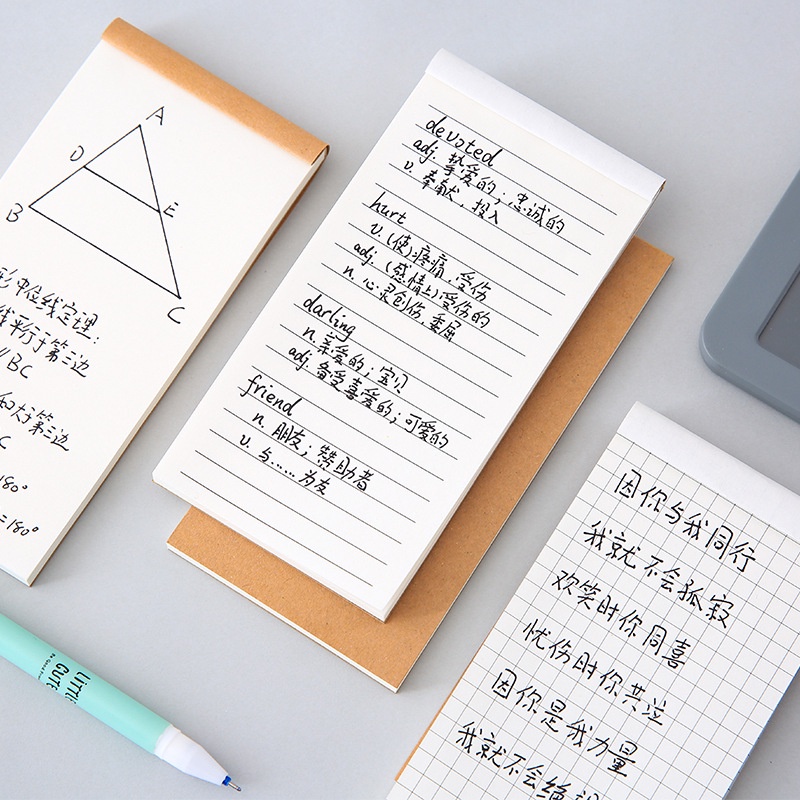 A
D
E
B
C
形中位线定理:
线平行于第三边
∥BC
和大于第三边
C
180°
=180°
devoted
adj. 挚爱的；忠诚的
v. 奉献，投入
hurt
v. (使)疼痛，受伤
adj. (感情上)受伤的
n. 心灵创伤，委屈
darling
n. 亲爱的；宝贝
adj. 备受喜爱的；可爱的
friend
n. 朋友；赞助者
v. 与……为友
因你与我同行
我就不会孤寂
欢笑时你同喜
忧伤时你共泣
因你是我力量
我就不会绝
LITTLE
CUTE